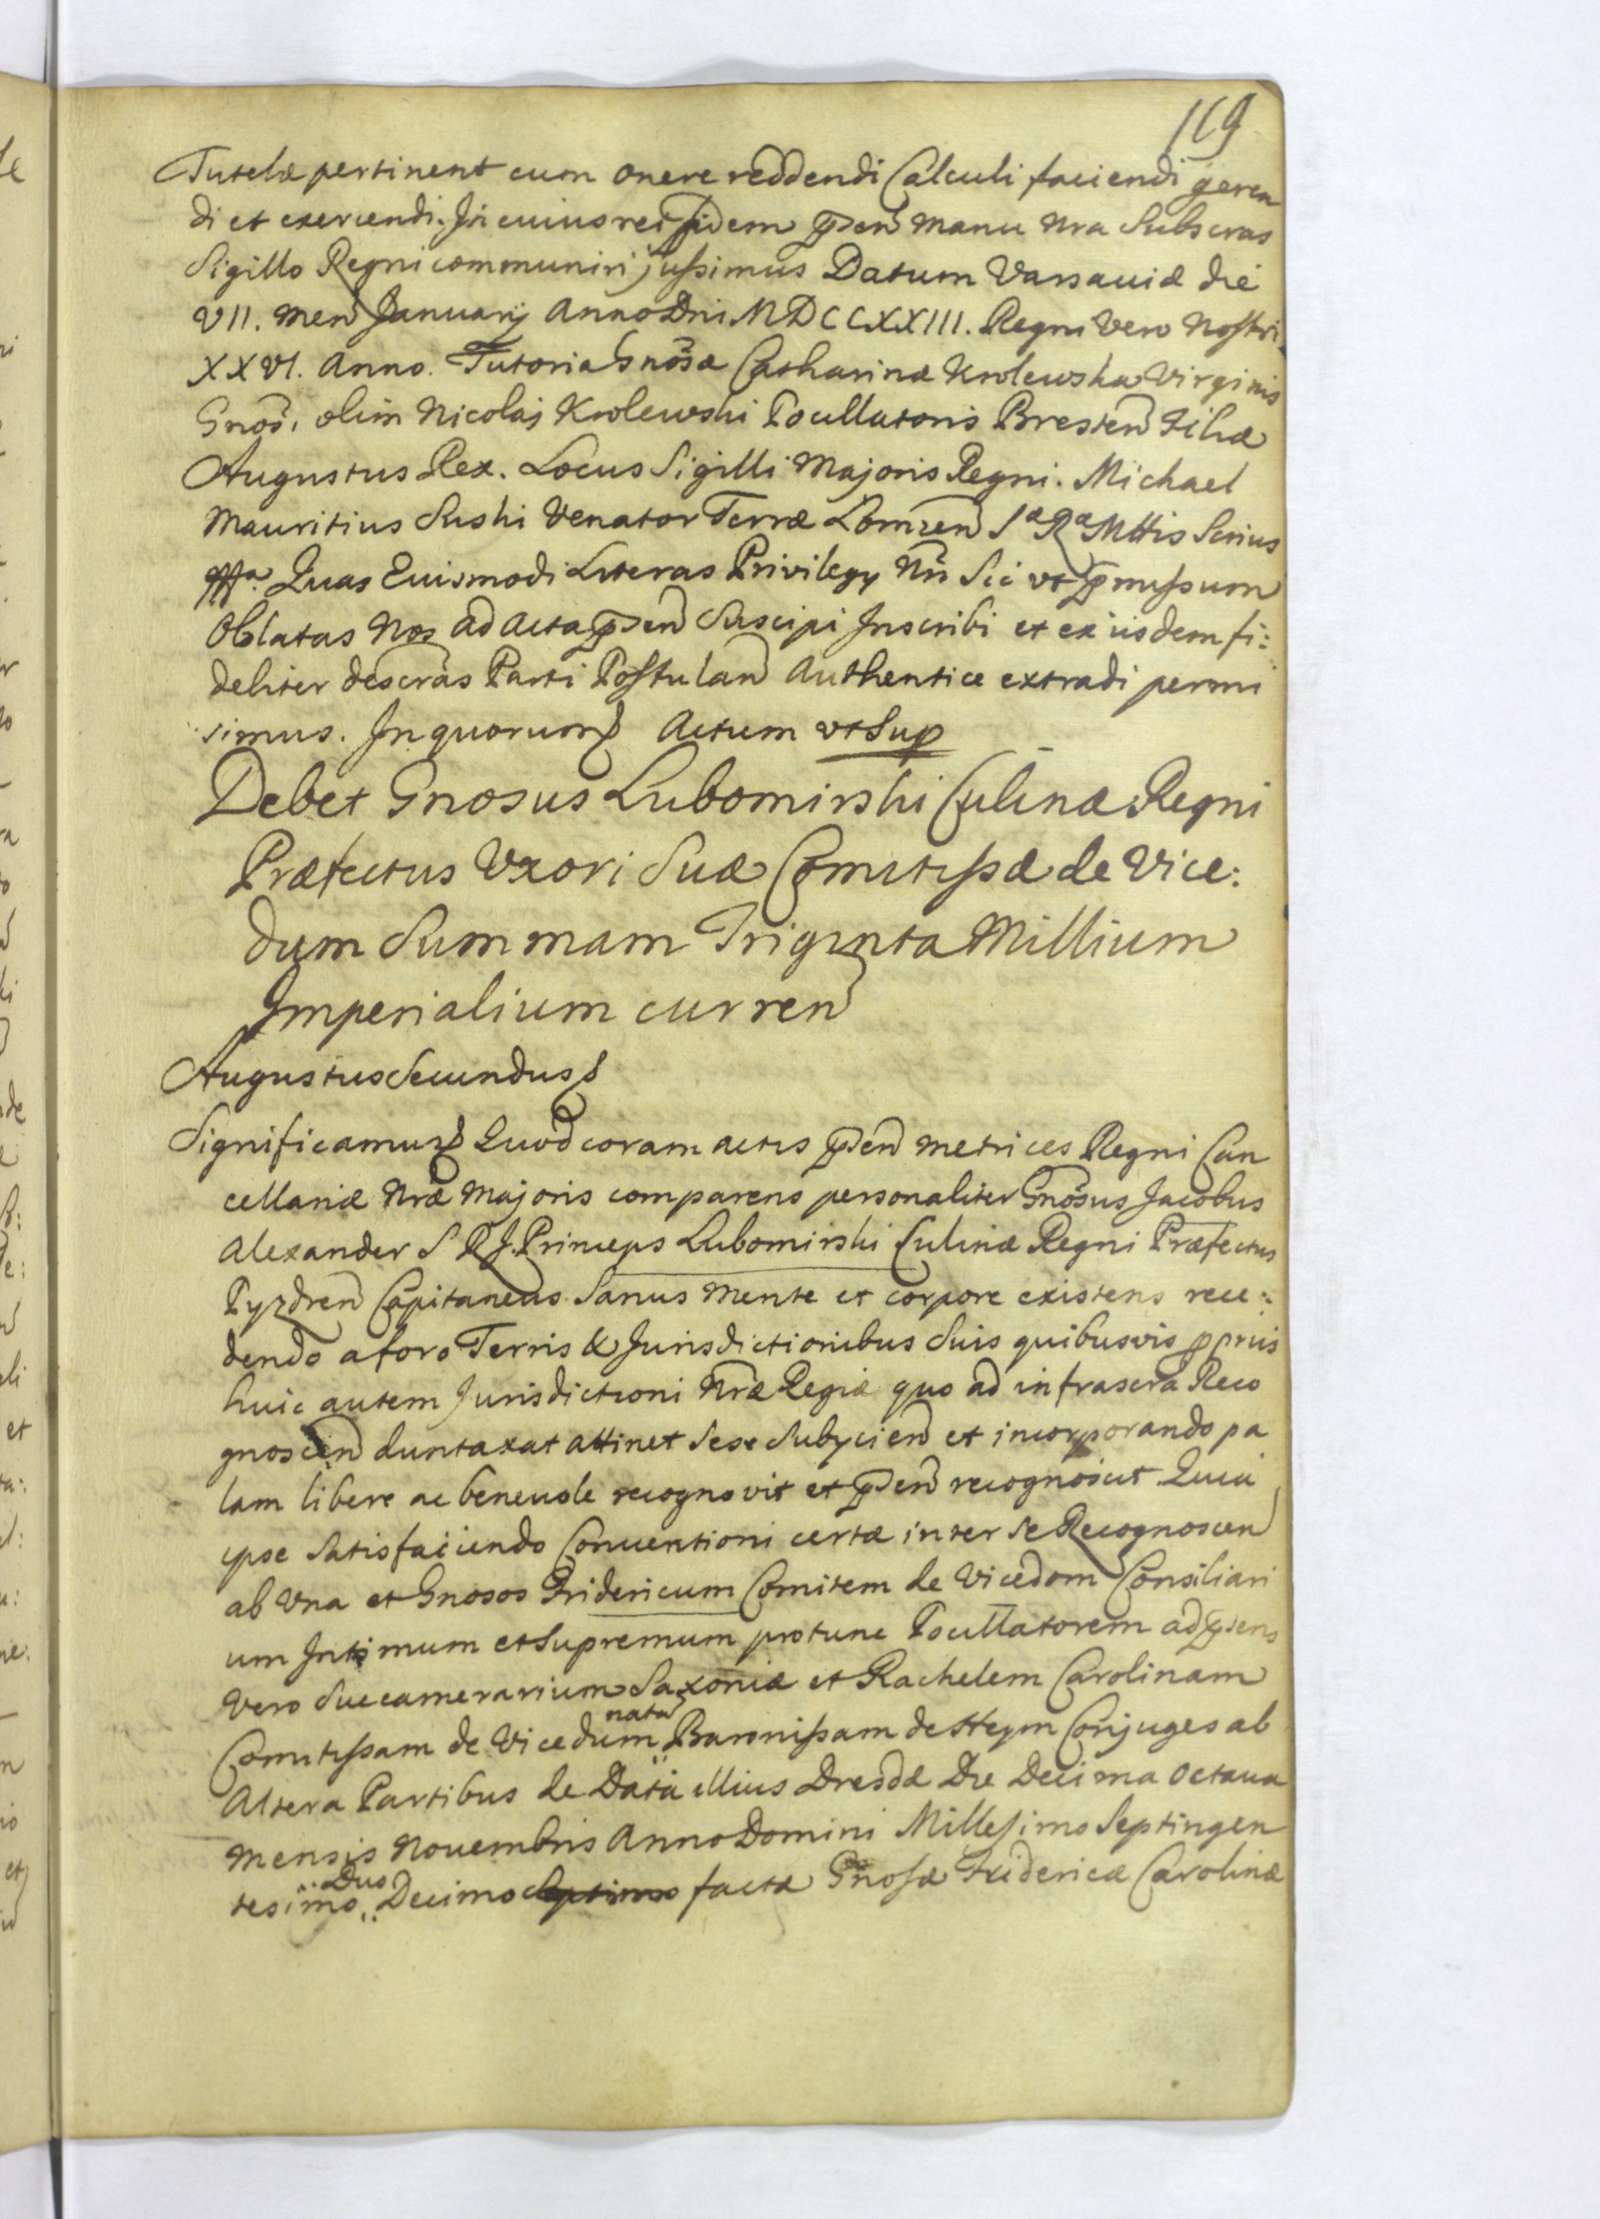 119
Tutelæ pertinent cum onere reddendi Calculi faciendi geren
di et exercendi. In cuius rei fidem p̄sen manu nra Subscras
Sigillo Regni communiri jussimus Datum Varsaviæ die
VII. men January Anno Dni MDCCXXIII. Regni Vero Nostri
XXVI. Anno. Tutoria Gnosæ Catharinæ Krolewska Virginis
Gnosi, olim Nicolai Krolewski Pocillatoris Bresten Filiæ
Augustus Rex. Locus Sigilli Majoris Regni. Michael
Mauritius Suski Venator Terræ Lomzen Sæ Ræ Mttis Scrius
Quas Euismodi Literas Privilegy Nri Sic ut p̄missum
Oblatas Nos ad Acta p̄sen Suscipi Inscribi et ex iisdem fi:
deliter descras Parti Postulan Authentice extradi permi
simus. In quorum Actum ut Sup
Debet Gnosus Lubomirski Culinæ Regni
Præfectus Uxori Suæ Comitissæ de Vice:
dum Summam Triginta Millium
Imperialium curren
Augustus Secundus
Significamus Quod coram actis p̄sen Metrices Regni Can
cellariæ Nræ Majoris comparens personaliter Gnosus Jacobus
Alexander S R J. Princeps Lubomirski Culinæ Regni Præfectus
Pyzdren Capitaneus Sanus Mente et corpore existens rece:
dendo a foro Terris & Jurisdictionibus Suis quibusvis ppriis
huic autem Jurisdictioni Nræ Regiæ quo ad infrascra Reco
gnoscen duntaxat attinet Sese Subycien et incorporando pa
lam libere ac benevole recognovit et p̄sen recognoscit Quia
ipse Satisfaciendo Conventioni certæ inter Se Recognoscen
ab Una et Gnosos Fridericum Comitem de Vicedom Consiliari
um Intimum et Supremum protunc Pocillatorem ad p̄sens
Vero Succamerarium Saxoniæ et Rachelem Carolinam
Comitissam de Vicedum nata Baronissam de Hoym Conjuges ab
Altera Partibus de Data illius Dresdæ Die Decima Octava
Mensis Novembris Anno Domini Millesimo Septingen
tesimo Duo Decimo Septimo factæ Gnosæ Fridericæ Carolinæ